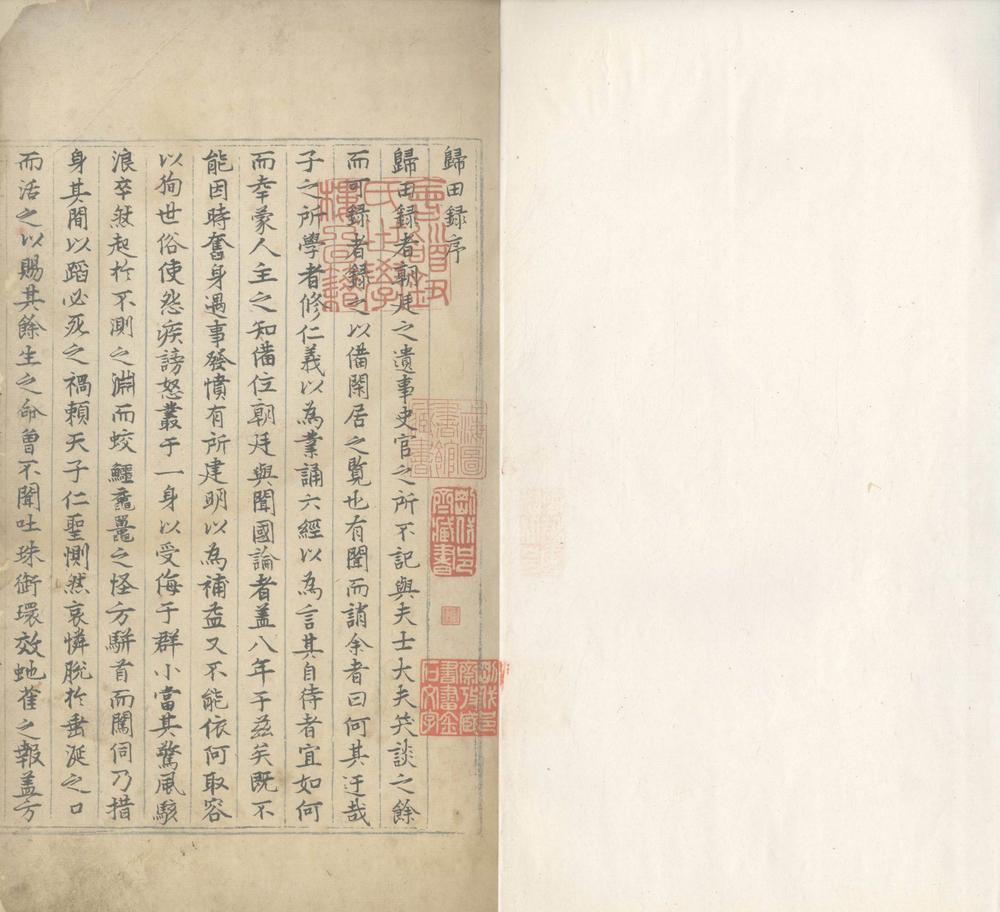 歸田録序
歸田録者朝廷之遺事史官之所不記與夫士大夫笑談之餘
而可録者録之以備閑居之覽也有聞而誚余者曰何其迂哉
子之所學者修仁義以為業誦六經以為言其自待者宜如何
而幸蒙人主之知備位朝廷與聞國論者盖八年于兹矣既不
能因時奮身遇事發憤有所建明以為補益又不能依何取容
以狥世俗使怨疾謗怒叢于一身以受侮于群小當其驚風駭
浪卒然起於不測之淵而蛟鱷黿鼉之怪方駢首而闖伺乃措
身其間以蹈必死之禍賴天子仁聖惻然哀憐脫於垂涎之口
而活之以賜其餘生之命曾不聞吐珠銜環效虵雀之報盖方
會稽鈕
氏世學
樓圖籍
上海圖
書館
藏書